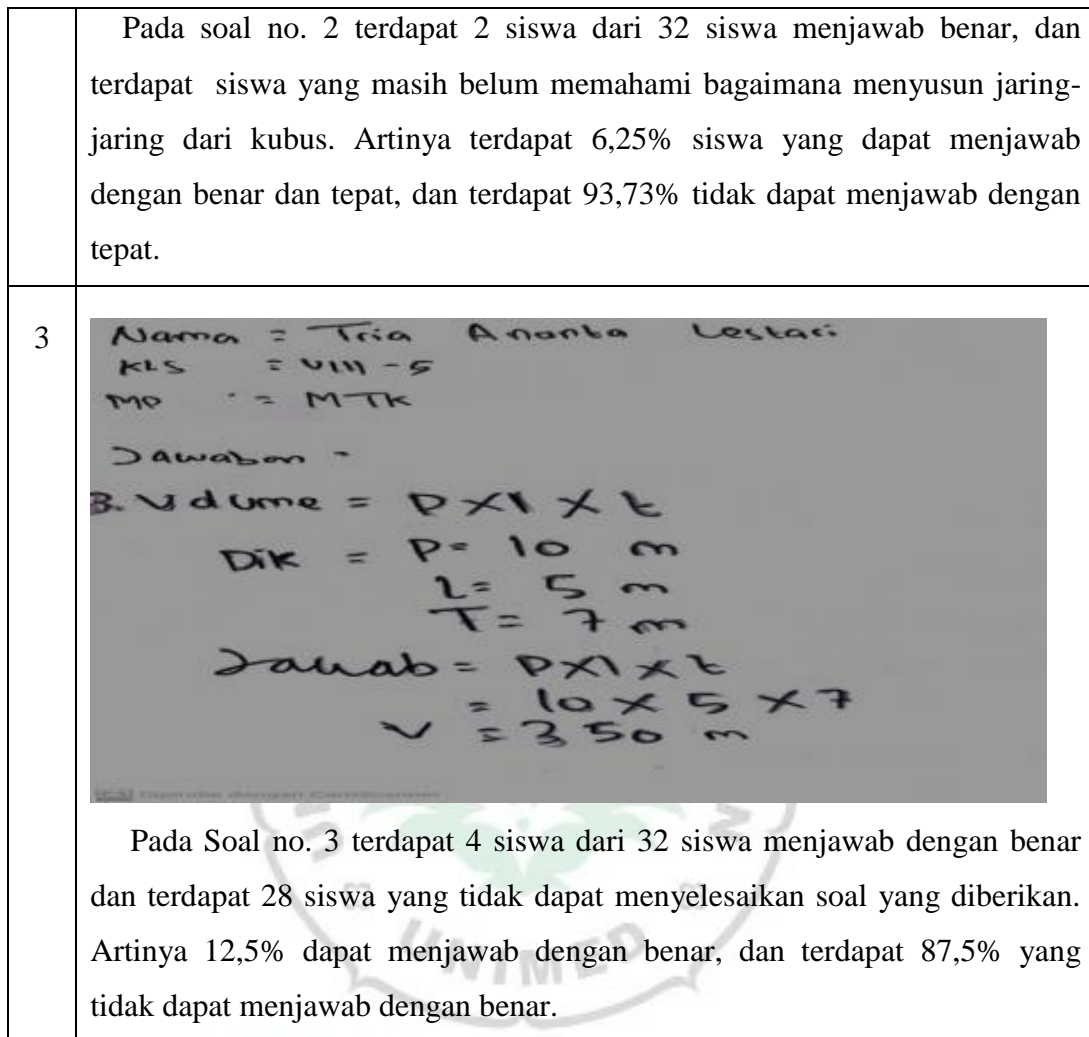 Pada soal no. 2 terdapat 2 siswa dari 32 siswa menjawab benar, dan
terdapat siswa yang masih belum memahami bagaimana menyusun jaring-
jaring dari kubus. Artinya terdapat 6,25% siswa yang dapat menjawab
dengan benar dan tepat, dan terdapat 93,73% tidak dapat menjawab dengan
tepat.
3
Nama = Tria Ananta Lestari
KLS = VIII - 5
MP = MTK
Jawaban -
3. Volume = P x l x t
Dik = P = 10 m
l = 5 m
T = 7 m
Jawab = P x l x t
= 10 x 5 x 7
V = 350 m
CS Dipindai dengan CamScanner
Pada Soal no. 3 terdapat 4 siswa dari 32 siswa menjawab dengan benar
dan terdapat 28 siswa yang tidak dapat menyelesaikan soal yang diberikan.
Artinya 12,5% dapat menjawab dengan benar, dan terdapat 87,5% yang
tidak dapat menjawab dengan benar.
UNIMED